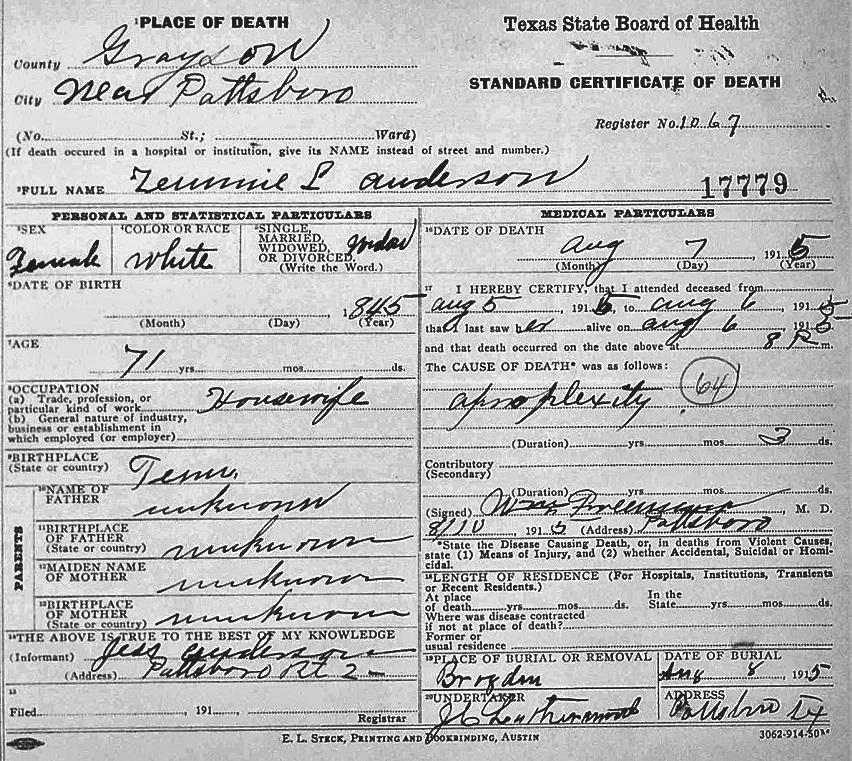 ¹PLACE OF DEATH
County Grayson
City Near Pattsboro
(No. St.; Ward)
(If death occured in a hospital or institution, give its NAME instead of street and number.)
Texas State Board of Health
STANDARD CERTIFICATE OF DEATH
Register No. 1067
²FULL NAME L Anderson
17779
PERSONAL AND STATISTICAL PARTICULARS
³SEX
Female
⁴COLOR OR RACE
White
⁵SINGLE,
MARRIED,
WIDOWED,
OR DIVORCED.
(Write the Word.)
⁶DATE OF BIRTH
1845
(Month) (Day) (Year)
⁷AGE
71 yrs. mos. ds.
⁸OCCUPATION
(a) Trade, profession, or
particular kind of work Housewife
(b) General nature of industry,
business or establishment in
which employed (or employer)
⁹BIRTHPLACE
(State or country) Tenn.
PARENTS
¹⁰NAME OF
FATHER unknown
¹¹BIRTHPLACE
OF FATHER
(State or country) unknown
¹²MAIDEN NAME
OF MOTHER unknown
¹³BIRTHPLACE
OF MOTHER
(State or country) unknown
¹⁴THE ABOVE IS TRUE TO THE BEST OF MY KNOWLEDGE
(Informant) Jess Anderson
(Address) Pattsboro Rt 2
¹⁵
Filed 191
Registrar
MEDICAL PARTICULARS
¹⁶DATE OF DEATH
Aug 7 1915
(Month) (Day) (Year)
¹⁷ I HEREBY CERTIFY, that I attended deceased from
Aug 5 1915, to Aug 6 1915
that I last saw her alive on Aug 6 1915
and that death occurred on the date above at 8 P. m.
The CAUSE OF DEATH* was as follows:
64
apoplexity
(Duration) yrs. mos. 3 ds.
Contributory
(Secondary)
(Duration) yrs. mos. ds.
(Signed) Wm Freeman, M. D.
8/10 1915 (Address) Pattsboro
*State the Disease Causing Death, or, in deaths from Violent Causes,
state (1) Means of Injury, and (2) whether Accidental, Suicidal or Homi-
cidal.
¹⁸LENGTH OF RESIDENCE (For Hospitals, Institutions, Transients
or Recent Residents.)
At place
of death yrs. mos. ds.
In the
State yrs. mos. ds.
Where was disease contracted
if not at place of death?
Former or
usual residence
¹⁹PLACE OF BURIAL OR REMOVAL
Brogdin
DATE OF BURIAL
Aug 8 1915
²⁰UNDERTAKER
ADDRESS
Pottsboro Tx
E. L. STECK, PRINTING AND BOOKBINDING, AUSTIN
3062-914-50M